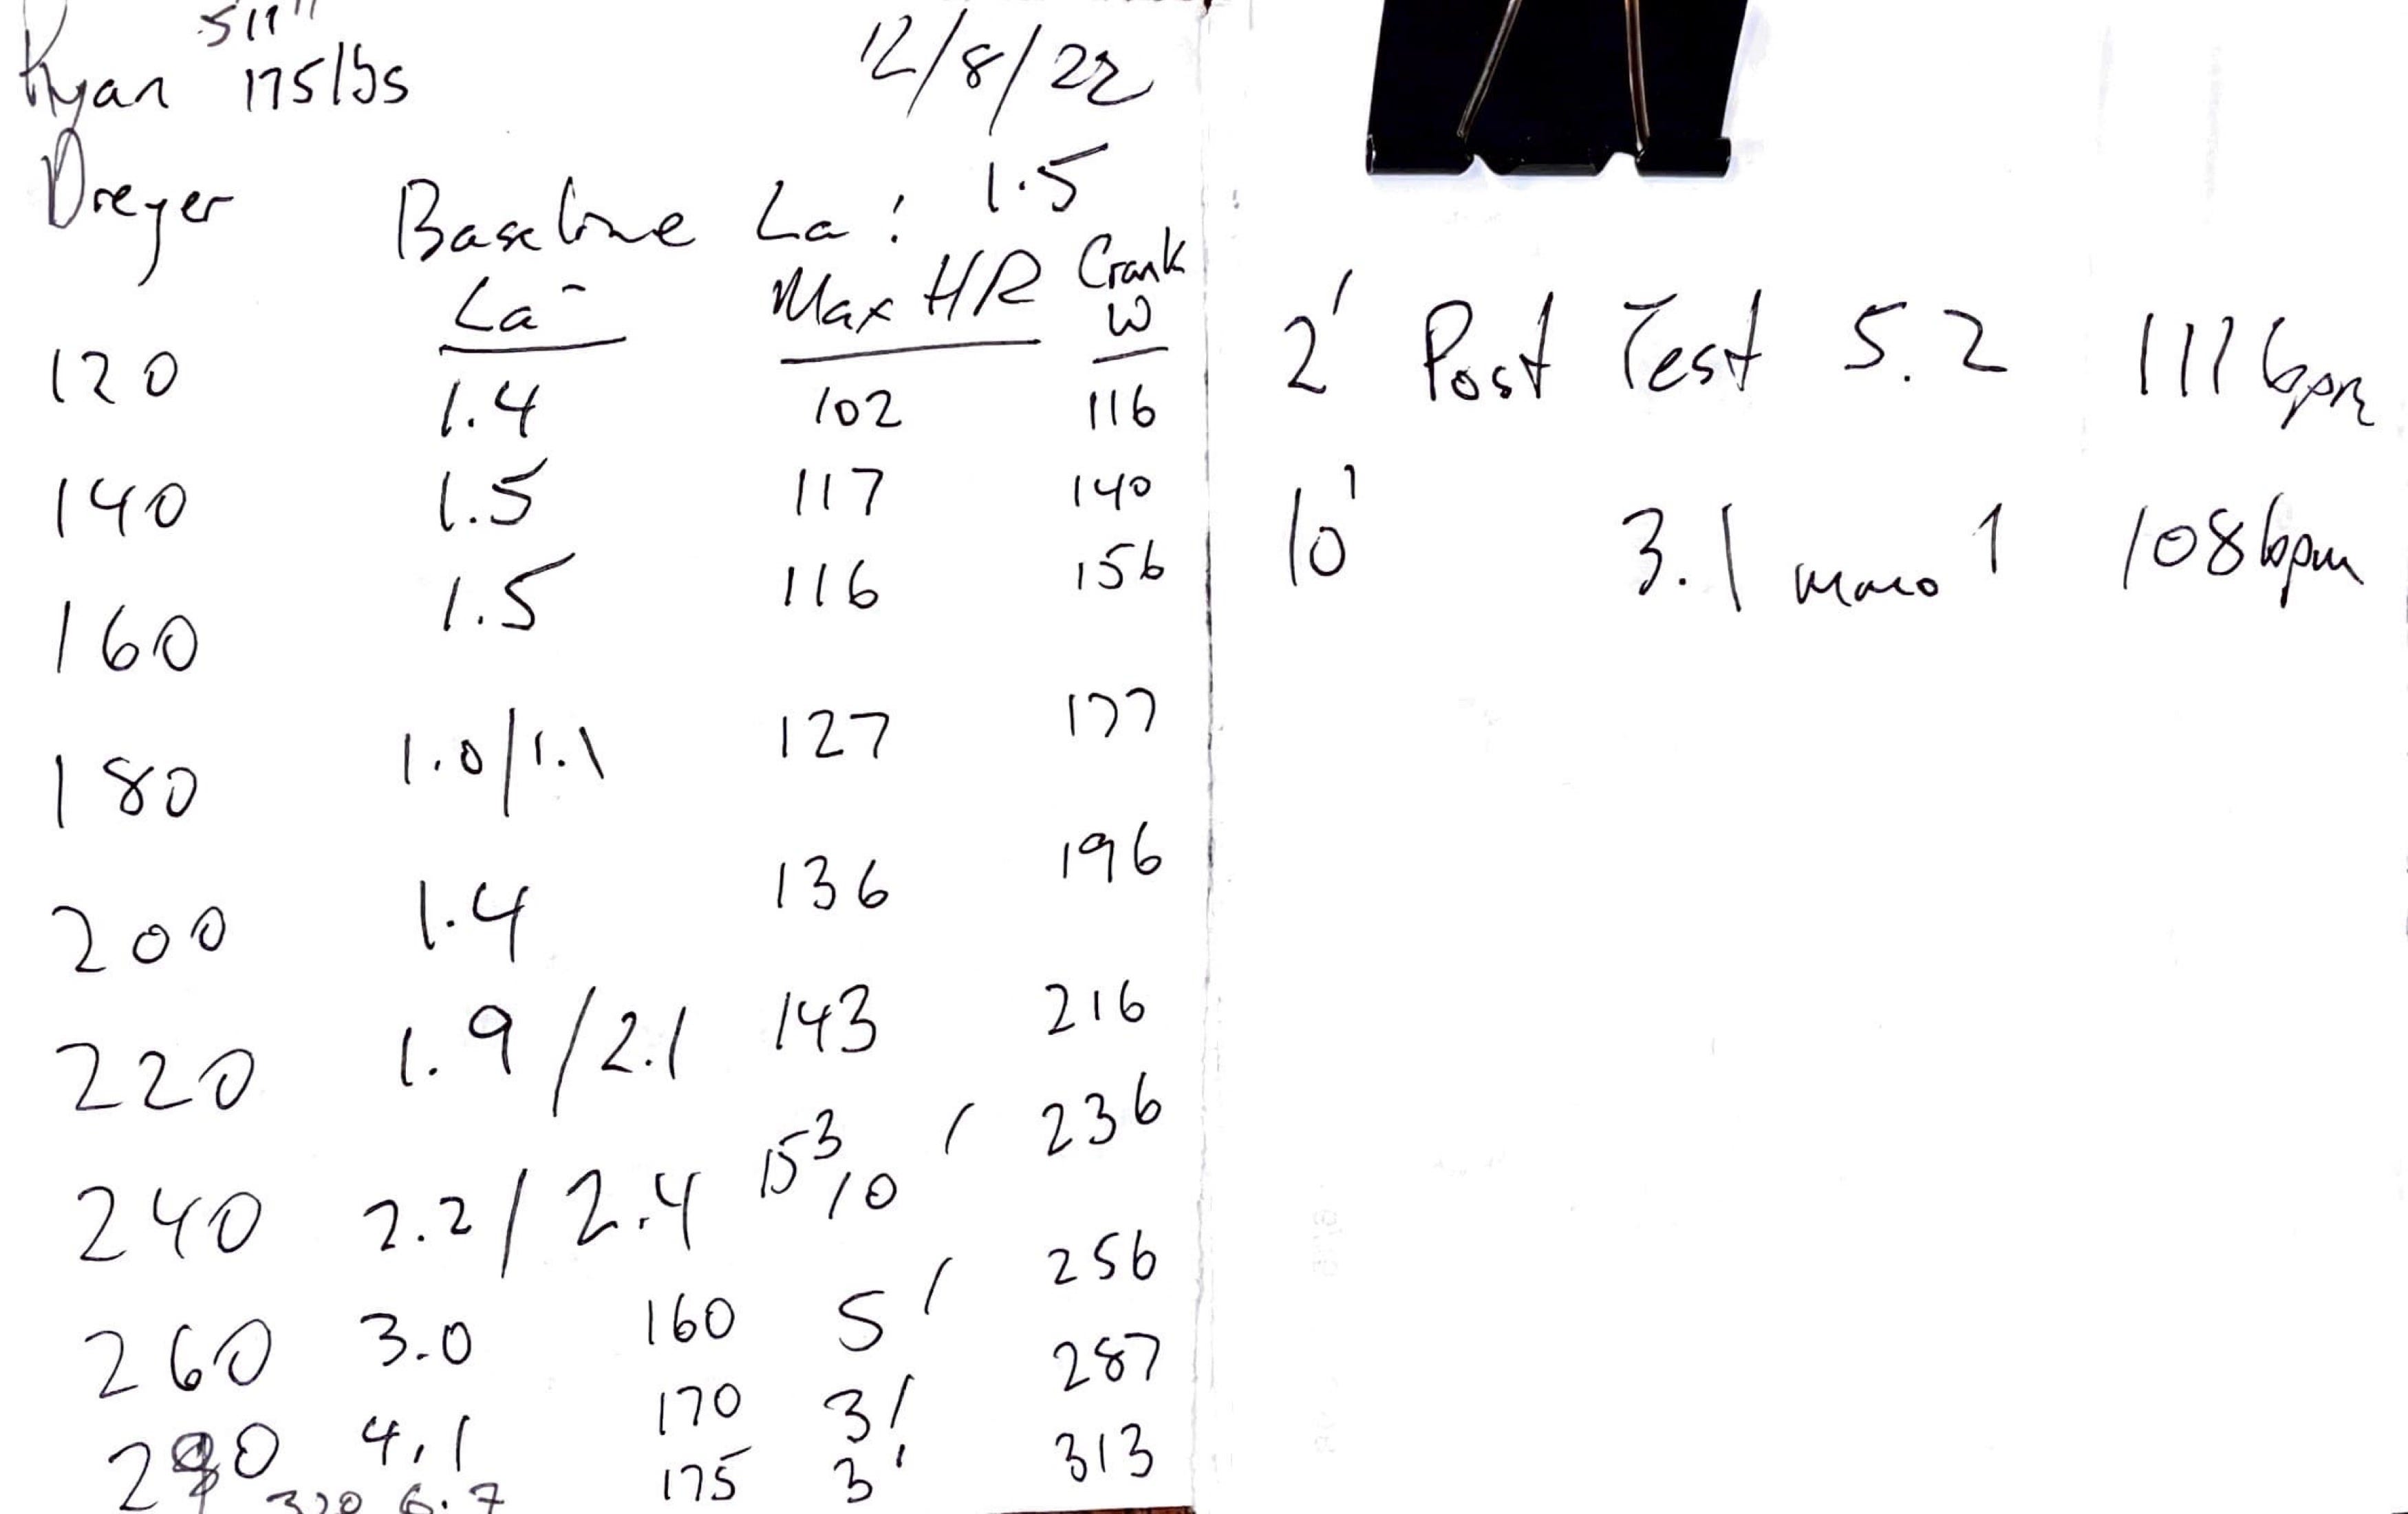 5'11"
Ryan 175lbs 12/8/22
Dreyer Baseline La: 1.5
La⁻ Max HR Crank W
120 1.4 102 116
140 1.5 117 140
160 1.5 116 156
180 1.0/1.1 127 177
200 1.4 136 196
220 1.9/2.1 143 216
240 2.2/2.4 153/10' 236
260 3.0 160 5' 256
290 4.1 170 3' 287
320 6.7 175 3' 313
2' Post Test 5.2 111bpm
10' 3.1 108bpm